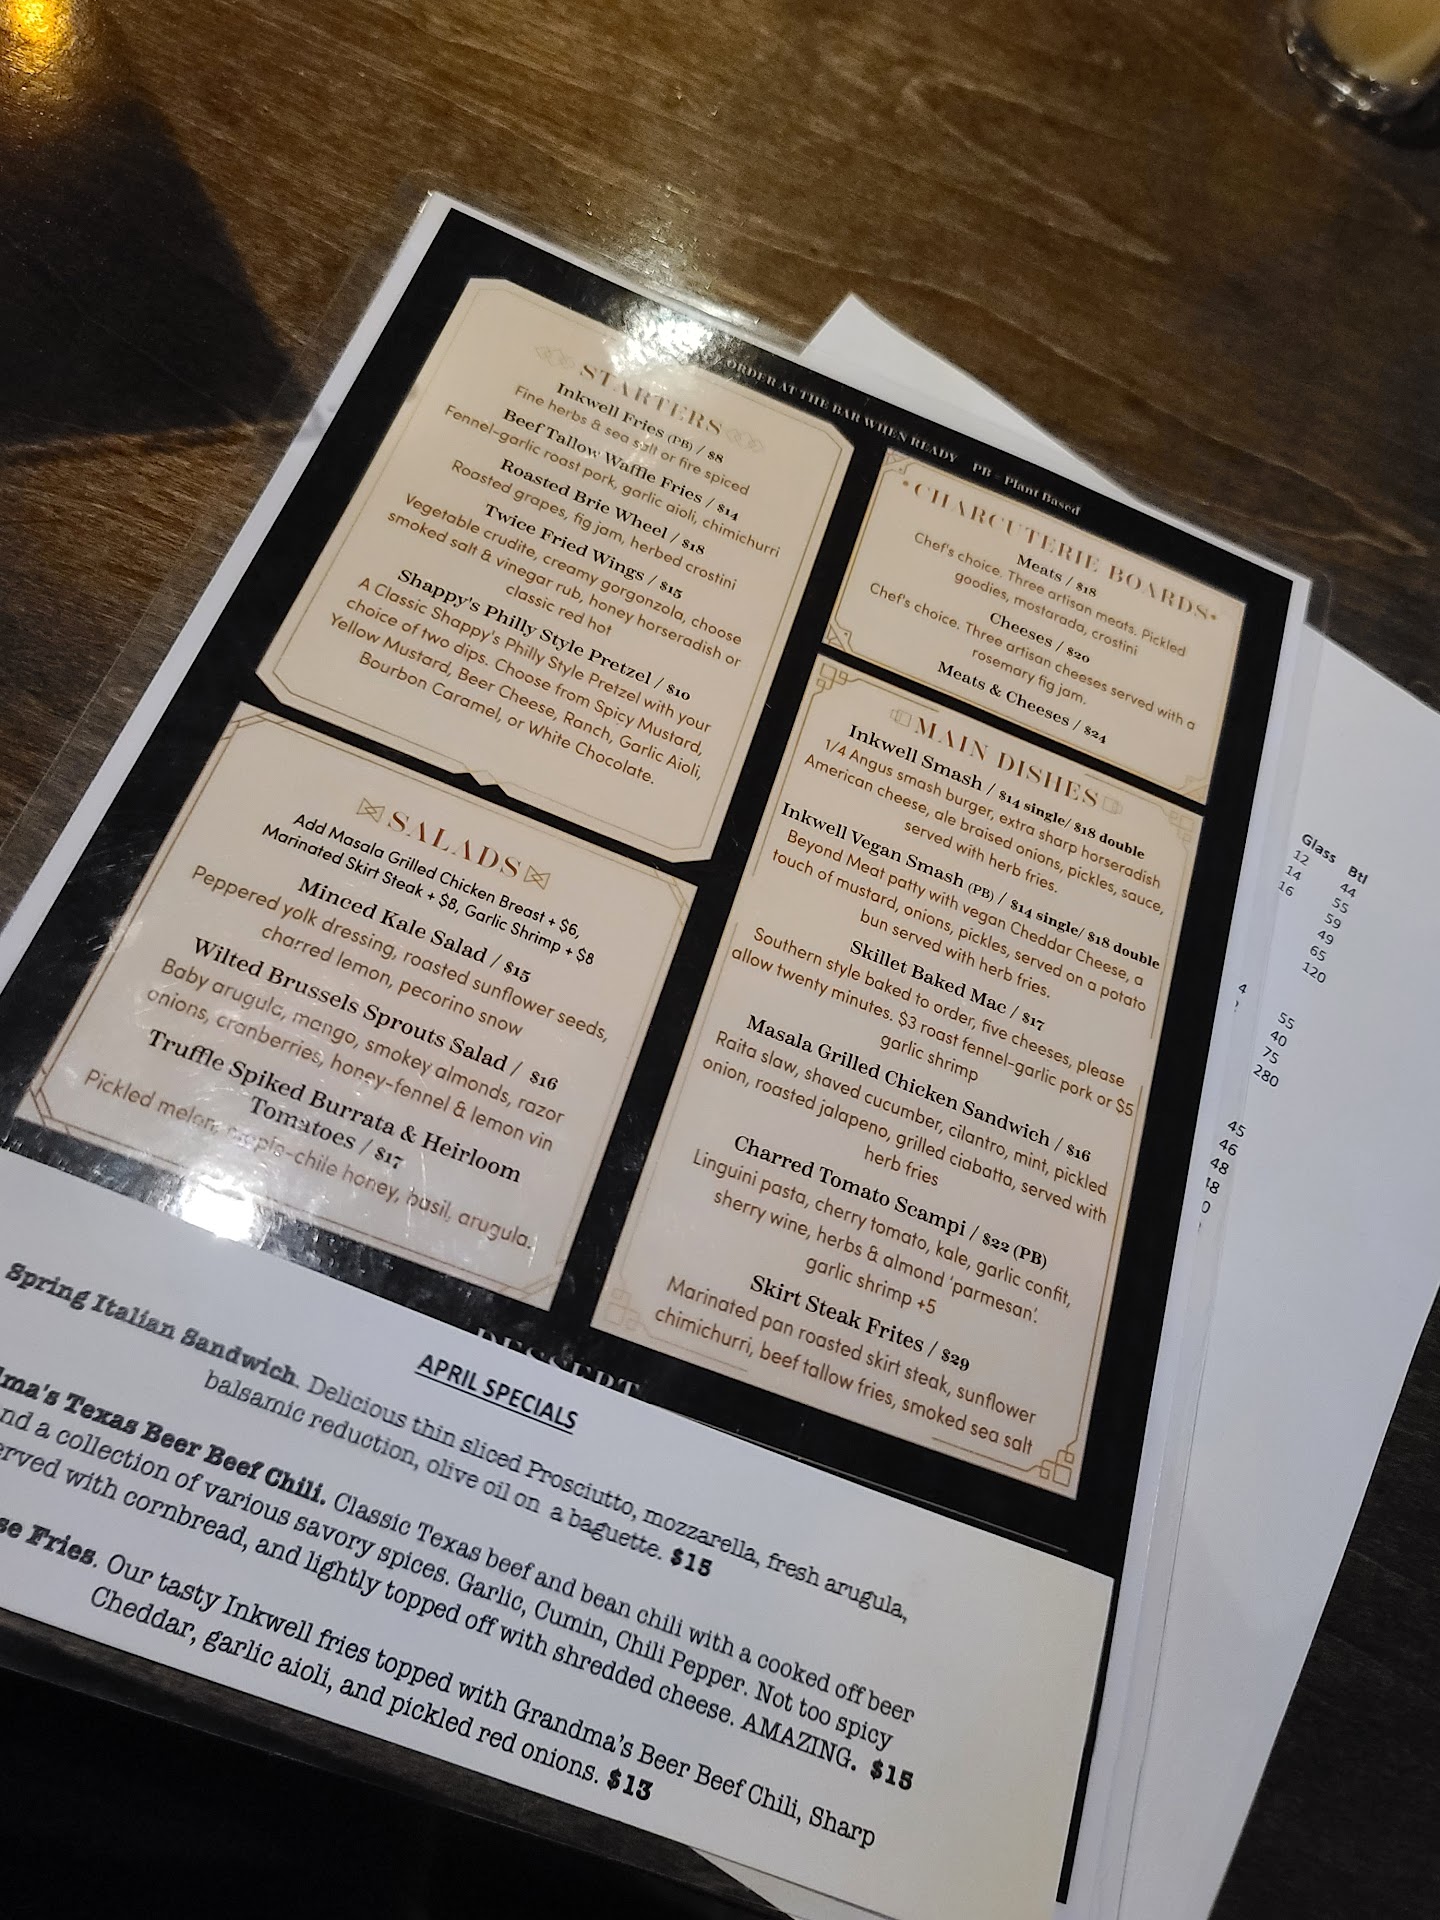 ORDER AT THE BAR WHEN READY PB - Plant Based
STARTERS
Inkwell Fries (PB) / $8
Fine herbs & sea salt or fire spiced
Beef Tallow Waffle Fries / $14
Fennel-garlic roast pork, garlic aioli, chimichurri
Roasted Brie Wheel / $18
Roasted grapes, fig jam, herbed crostini
Twice Fried Wings / $15
Vegetable crudite, creamy gorgonzola, choose
smoked salt & vinegar rub, honey horseradish or
classic red hot
Shappy's Philly Style Pretzel / $10
A Classic Shappy's Philly Style Pretzel with your
choice of two dips. Choose from Spicy Mustard,
Yellow Mustard, Beer Cheese, Ranch, Garlic Aioli,
Bourbon Caramel, or White Chocolate.
SALADS
Add Masala Grilled Chicken Breast + $6,
Marinated Skirt Steak + $8, Garlic Shrimp + $8
Minced Kale Salad / $15
Peppered yolk dressing, roasted sunflower seeds,
charred lemon, pecorino snow
Wilted Brussels Sprouts Salad / $16
Baby arugula, mango, smokey almonds, razor
onions, cranberries, honey-fennel & lemon vin
Truffle Spiked Burrata & Heirloom
Tomatoes / $17
Pickled melon, maple-chile honey, basil, arugula.
CHARCUTERIE BOARDS
Meats / $18
Chef's choice. Three artisan meats. Pickled
goodies, mostarada, crostini
Cheeses / $20
Chef's choice. Three artisan cheeses served with a
rosemary fig jam.
Meats & Cheeses / $24
MAIN DISHES
Inkwell Smash / $14 single/ $18 double
1/4 Angus smash burger, extra sharp horseradish
American cheese, ale braised onions, pickles, sauce,
served with herb fries.
Inkwell Vegan Smash (PB) / $14 single/ $18 double
Beyond Meat patty with vegan Cheddar Cheese, a
touch of mustard, onions, pickles, served on a potato
bun served with herb fries.
Skillet Baked Mac / $17
Southern style baked to order, five cheeses, please
allow twenty minutes. $3 roast fennel-garlic pork or $5
garlic shrimp
Masala Grilled Chicken Sandwich / $16
Raita slaw, shaved cucumber, cilantro, mint, pickled
onion, roasted jalapeno, grilled ciabatta, served with
herb fries
Charred Tomato Scampi / $22 (PB)
Linguini pasta, cherry tomato, kale, garlic confit,
sherry wine, herbs & almond 'parmesan'.
garlic shrimp +5
Skirt Steak Frites / $29
Marinated pan roasted skirt steak, sunflower
chimichurri, beef tallow fries, smoked sea salt
DESSERT
APRIL SPECIALS
Spring Italian Sandwich. Delicious thin sliced Prosciutto, mozzarella, fresh arugula,
balsamic reduction, olive oil on a baguette. $15
Texas Beer Beef Chili. Classic Texas beef and bean chili with a cooked off beer
a collection of various savory spices. Garlic, Cumin, Chili Pepper. Not too spicy
with cornbread, and lightly topped off with shredded cheese. AMAZING. $15
Fries. Our tasty Inkwell fries topped with Grandma's Beer Beef Chili, Sharp
Cheddar, garlic aioli, and pickled red onions. $13
Glass Btl
12 44
14 55
16 59
49
65
120
55
40
75
280
45
46
48